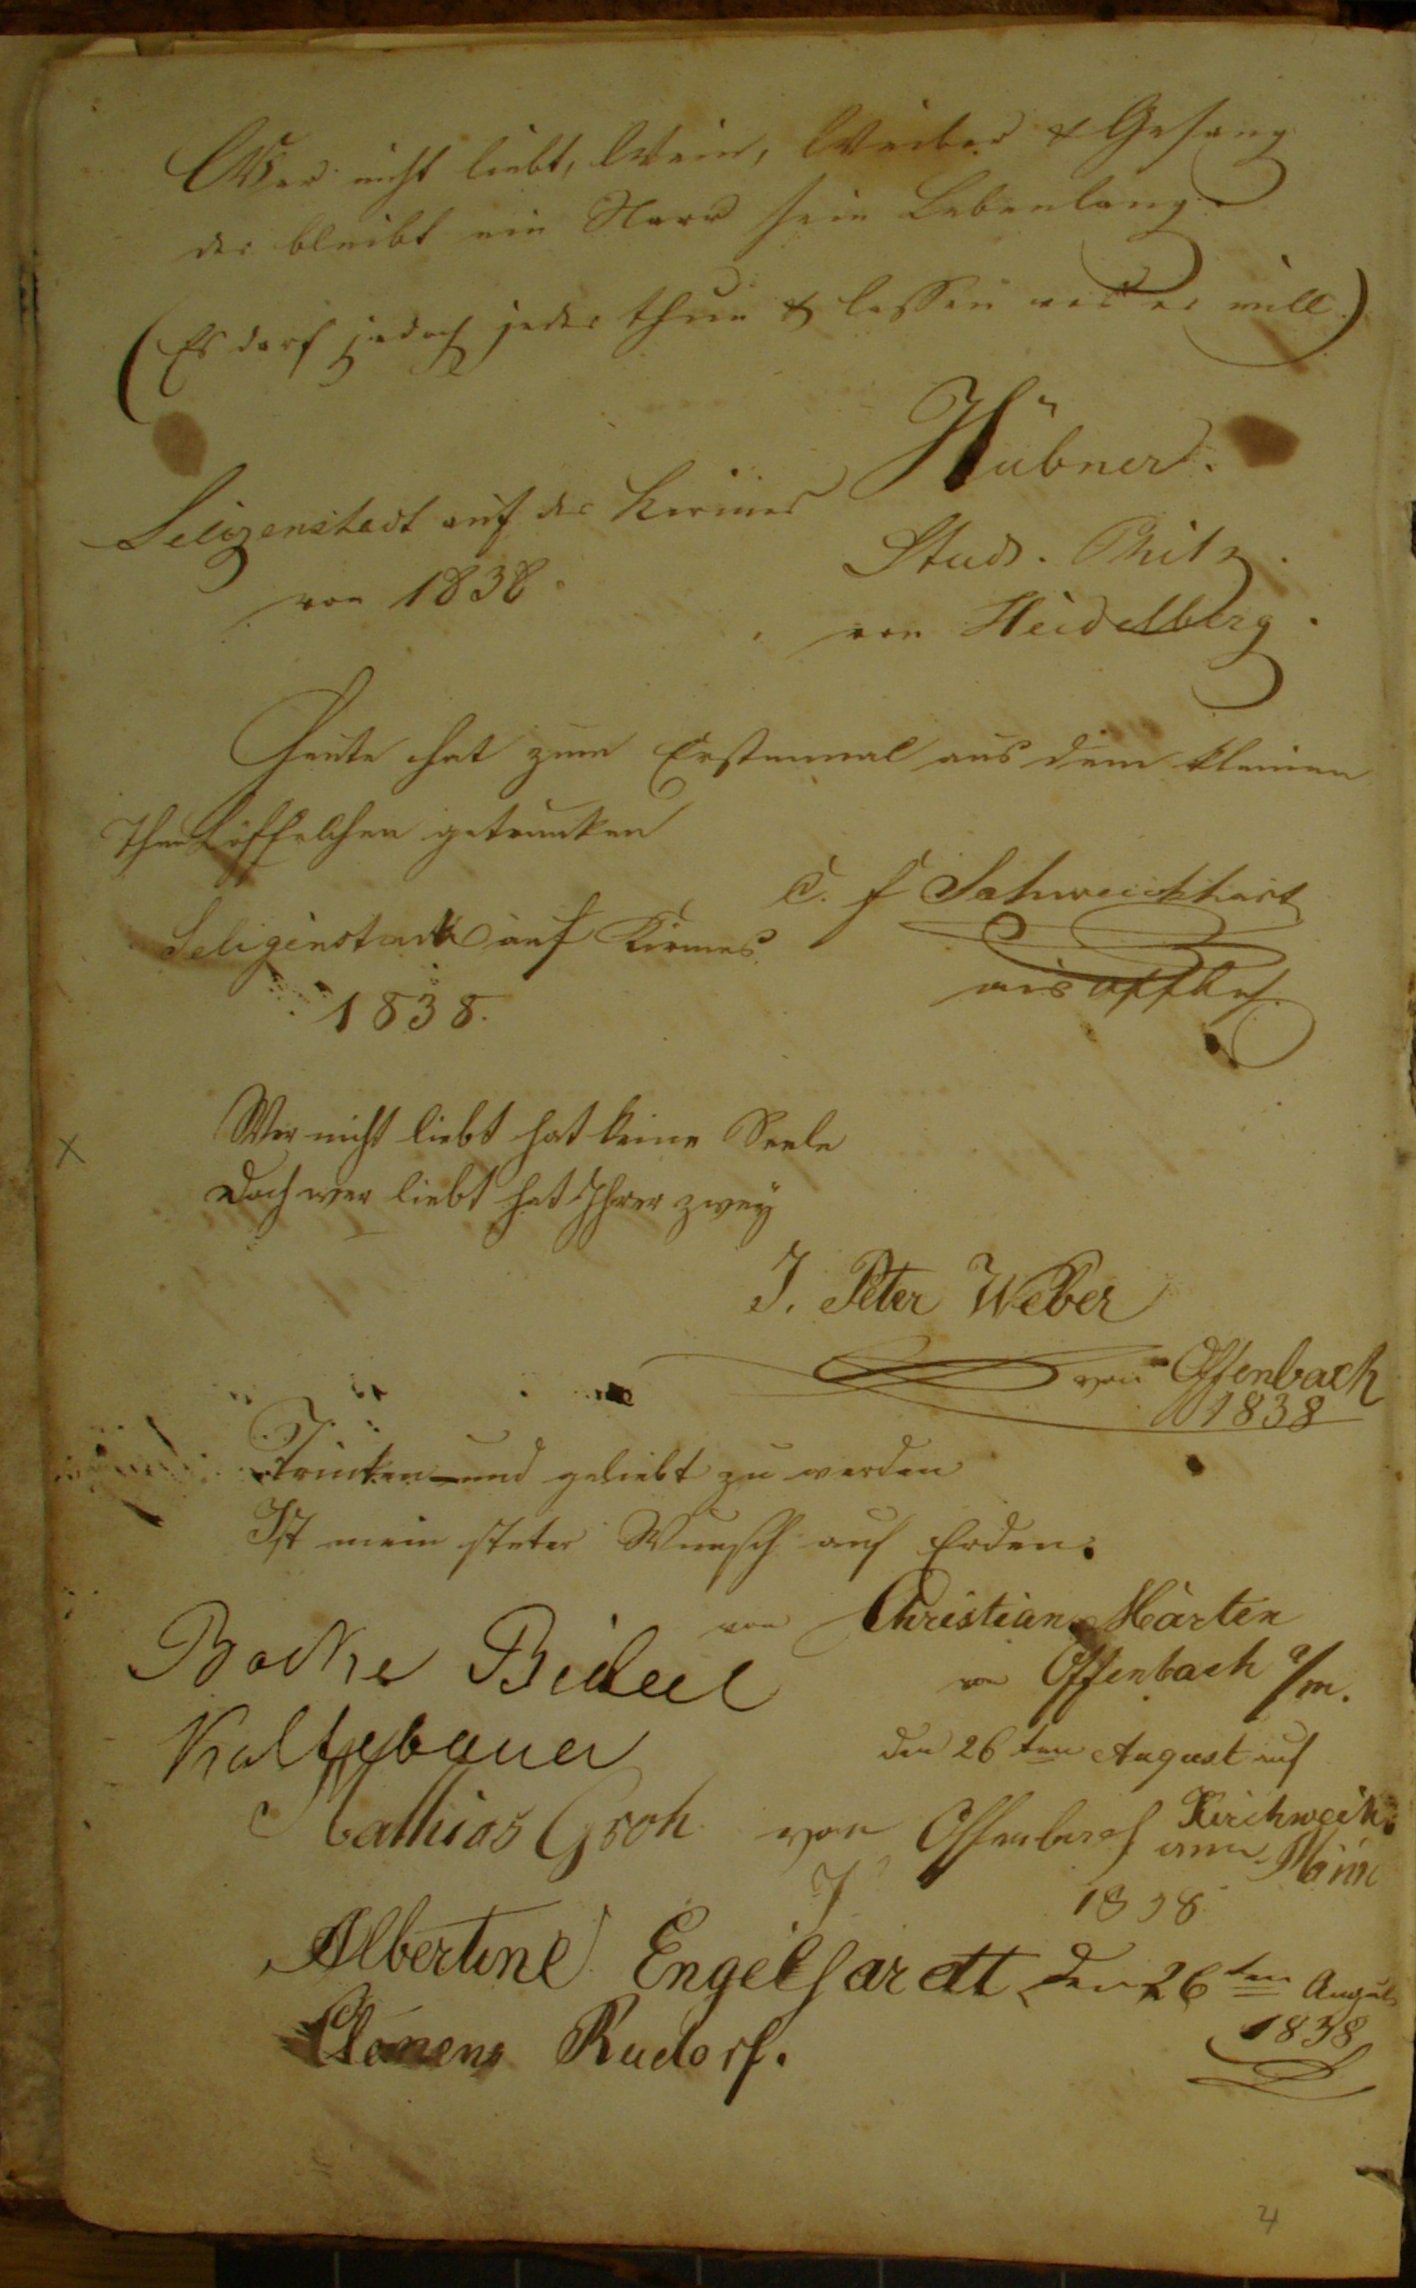 Wer nicht liebt, Wein, Weiber & Gesang
der bleibt ein Narr sein Lebenlang
(Es darf jedoch jeder thun & lassen was er will.)
Hübner.
Seligenstadt auf der Kermes
von 1838.
Stud.
von Heidelberg.
Heute hat zum Erstenmal aus dem kleinen
Thee Löffelchen getrunken
C. f Schweickhart
Seligenstadt auf Kirmes
aus Offbch.
1838.
x
Wer nicht liebt hat keine Seele
Doch wer liebt hat Ihrer zwey
J. Peter Weber
von Offenbach
1838
Trinken und geliebt zu werden
Ist mein steter Wunsch auf Erden.
von Christian Märten
von Offenbach a/m.
den 26ten August auf
Kirchweih
Mathias Groh von Offenbach am Main
1838
Albertine Engelhardt den 26ten August
1838
Clemens Rudorf.
4